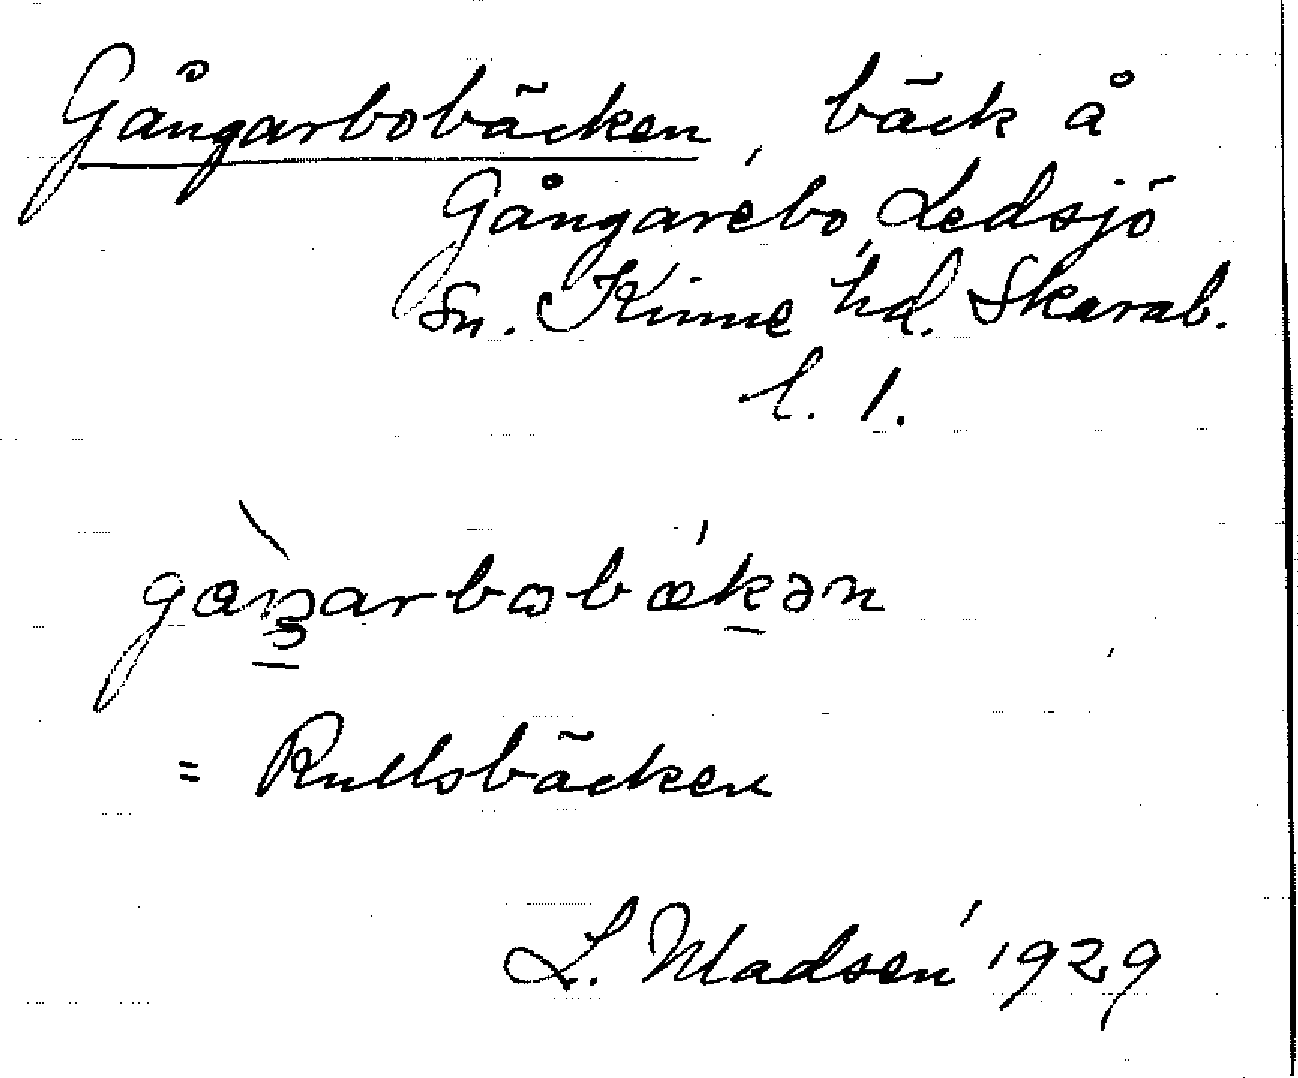 Gångarbobäcken, bäck å
Gångarebo, Ledsjö
sn. Kinne hd. Skarab.
l. 1.
gaŋarbobækən
= Rullsbäcken
L. Madsén 1929